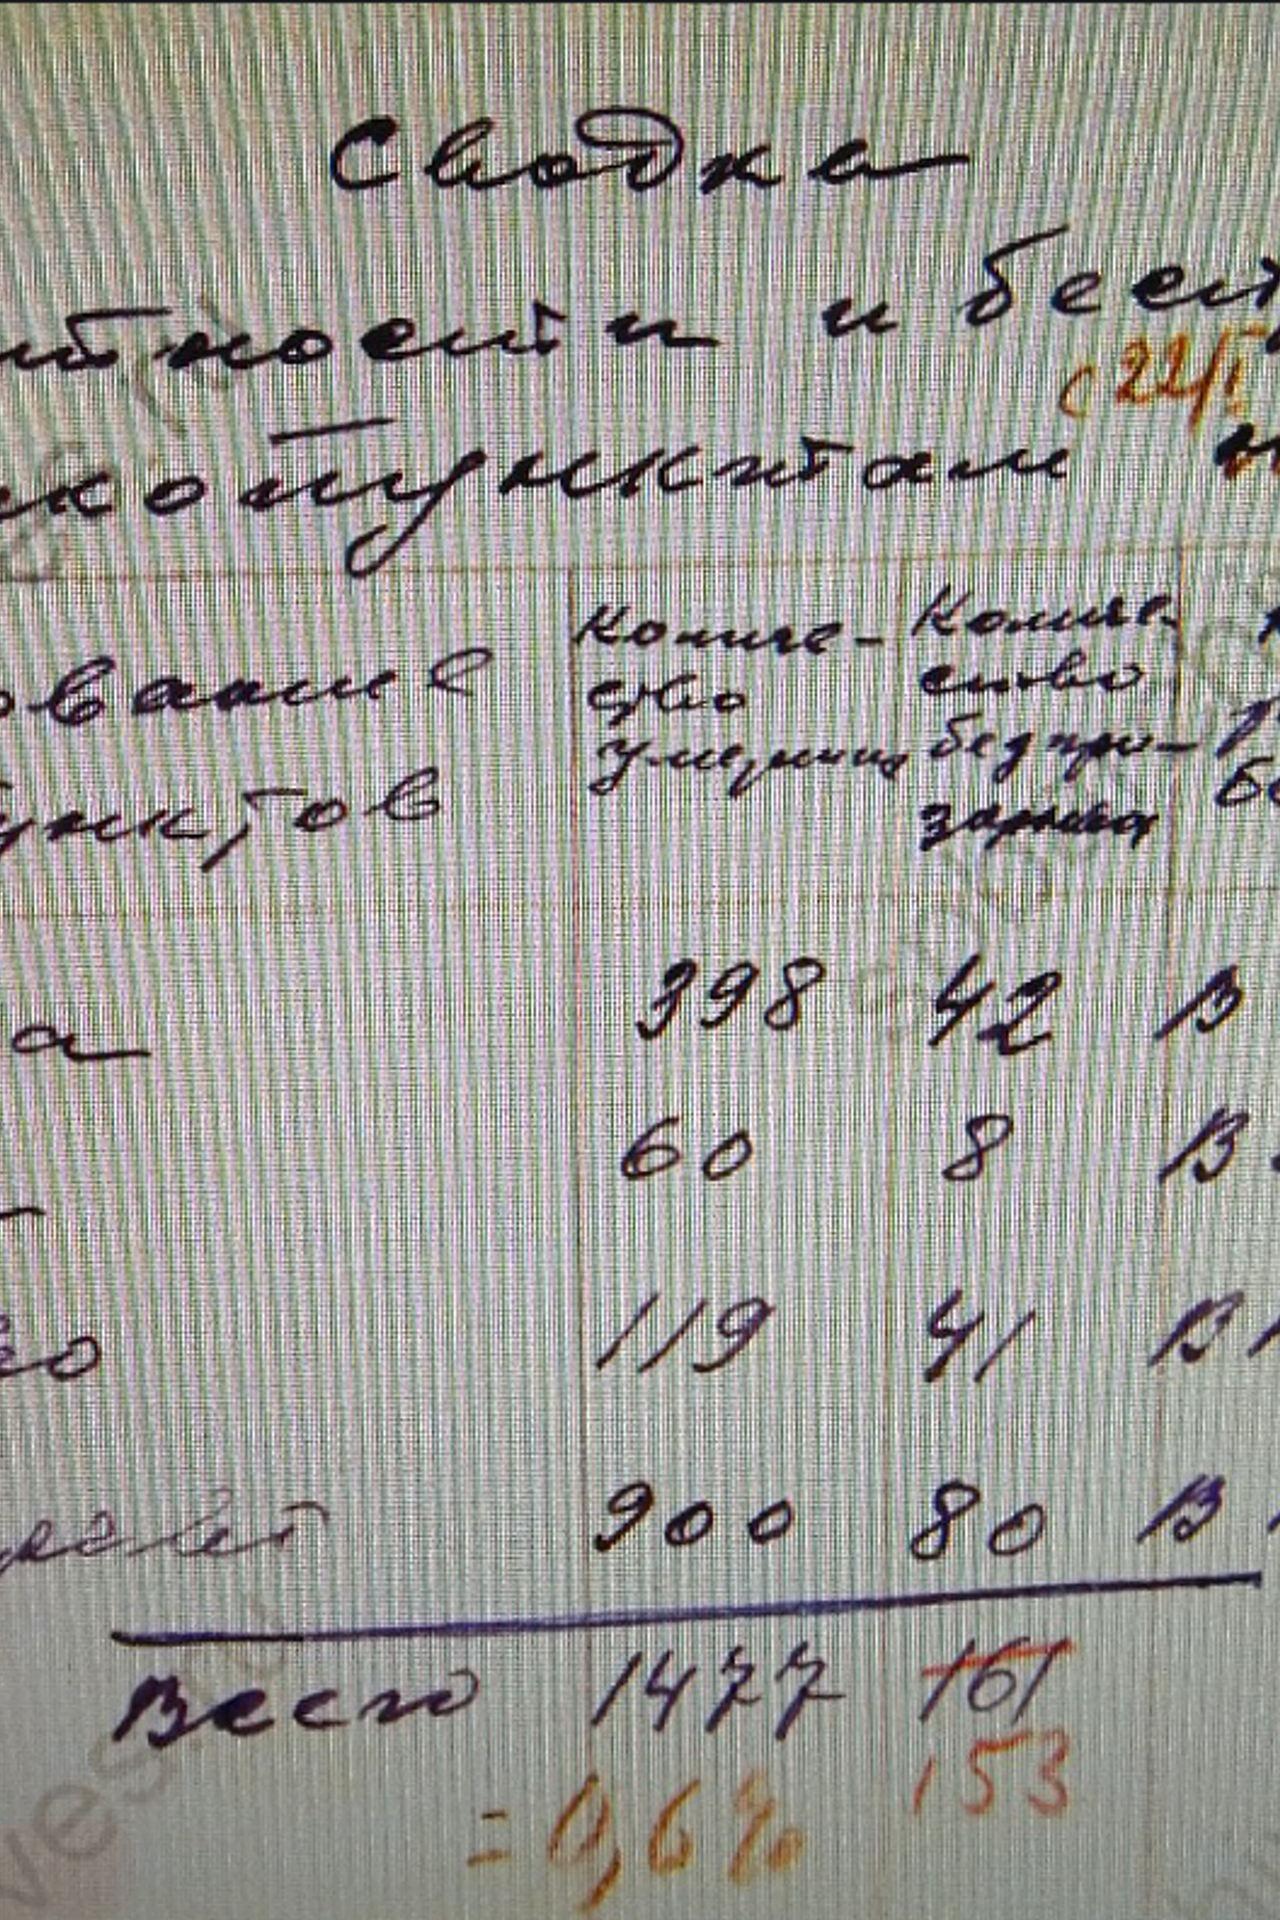 Сводка
тности и бест
с 22/I
копунктам н
ование
пунктов
Количе-
ство
умерших
Количе-
ство
беспри-
зорных
398 42 В
60 8 В
119 41 В
900 80 В
Всего 1477 161
153
= 0,6%